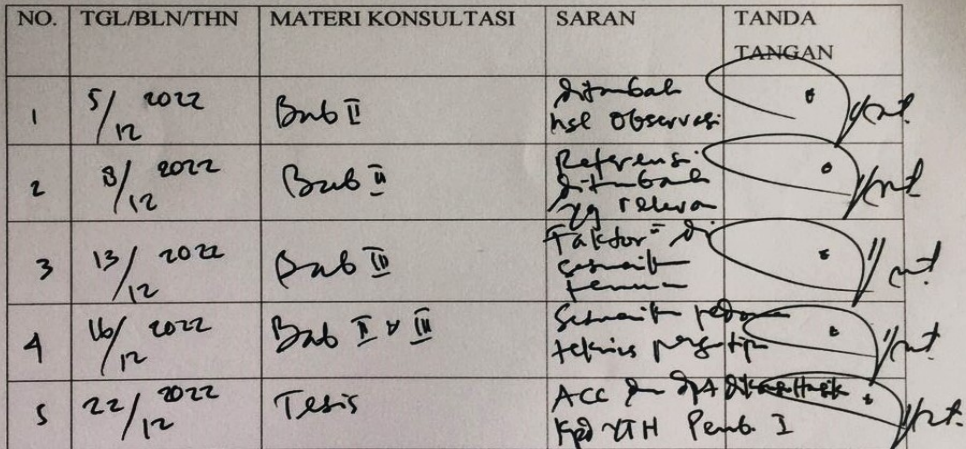 NO. TGL/BLN/THN MATERI KONSULTASI SARAN TANDA
TANGAN
1 5/12 2022 Bab II ditambah
hsl observasi
2 8/12 2022 Bab II Referensi
ditambah
yg relevan
3 13/12 2022 Bab III Faktor = di
sesuaik
4 16/12 2022 Bab II & III Sesuaik pedoman
teknis pengutip
5 22/12 2022 Tesis ACC dan dpA
kpd YTH Pemb. I